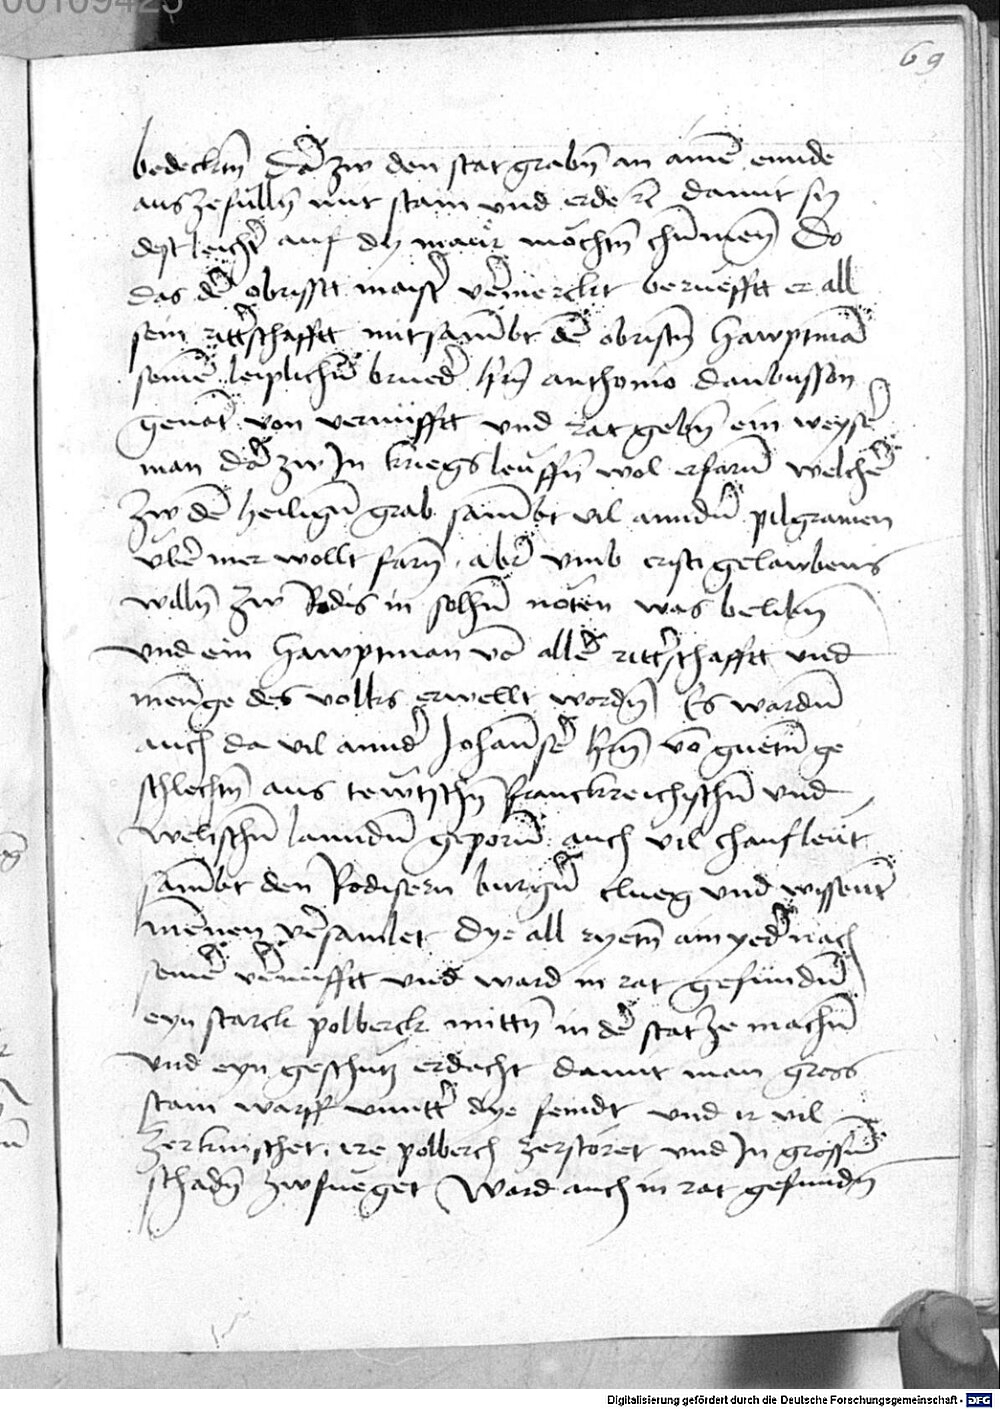 00109425
69
bedecktn̄ Dar̄ zw den stat grabn̄ an ainē ennde
aus zefulln̄ mit stain vnd erdē rc̄ damit sy
dest leicht̄ auf dy maür möchtn̄ chūmen̄ Do
das dē obrisstt maist̄ vermerckt beruefftt er all
sein ritt̄schafftt mitsambt dē obristn̄ hawptmā
seinē leiplichn̄ brued̄ hrn̄ anthonio daubusson
genāt von vernüfftt vnd rat gebn̄ ein weysē
man dar̄ zw Jn kriegsleuffn̄ wol erfarn̄ welchē
zw dē heilign̄ grab sambt vil anndn̄ pilgramen
vber̄ mer wollt farn̄ . aber̄ vmb cristi gelawbens
willn̄ zw Rodis in solhn̄ nöten was belibn̄
vnd ein hawptman vō allē ritt̄schafftt vnd
menige des volks erwellt wordn̄ Es wardn̄
auch da vil annder̄ Johansē hrn̄ vō guetn̄ ge
schlechtn̄ aus tewtschn̄ franckreichischn̄ vnd
welischn̄ lanndn̄ geporn̄ auch vil chaufleut
sambt den Rodisern burgn̄ clueg vnd wissent
mēnen versamlet Dye all ryetn̄ ain yeder̄ nach
seinē vernüfftt vnd ward in rat gefundn̄
eyn starck polberck mittn̄ in dē stat ze machn̄
vnd eyn geschutz erdacht damit man gross
stain warff vnntt̄ dye feindt vnd ir vil
zerknischet . ire polberch zerstöret vnd Jn grossn̄
schadn̄ zwfueget Ward auch in rat gefundn̄
Digitalisierung gefördert durch die Deutsche Forschungsgemeinschaft - DFG